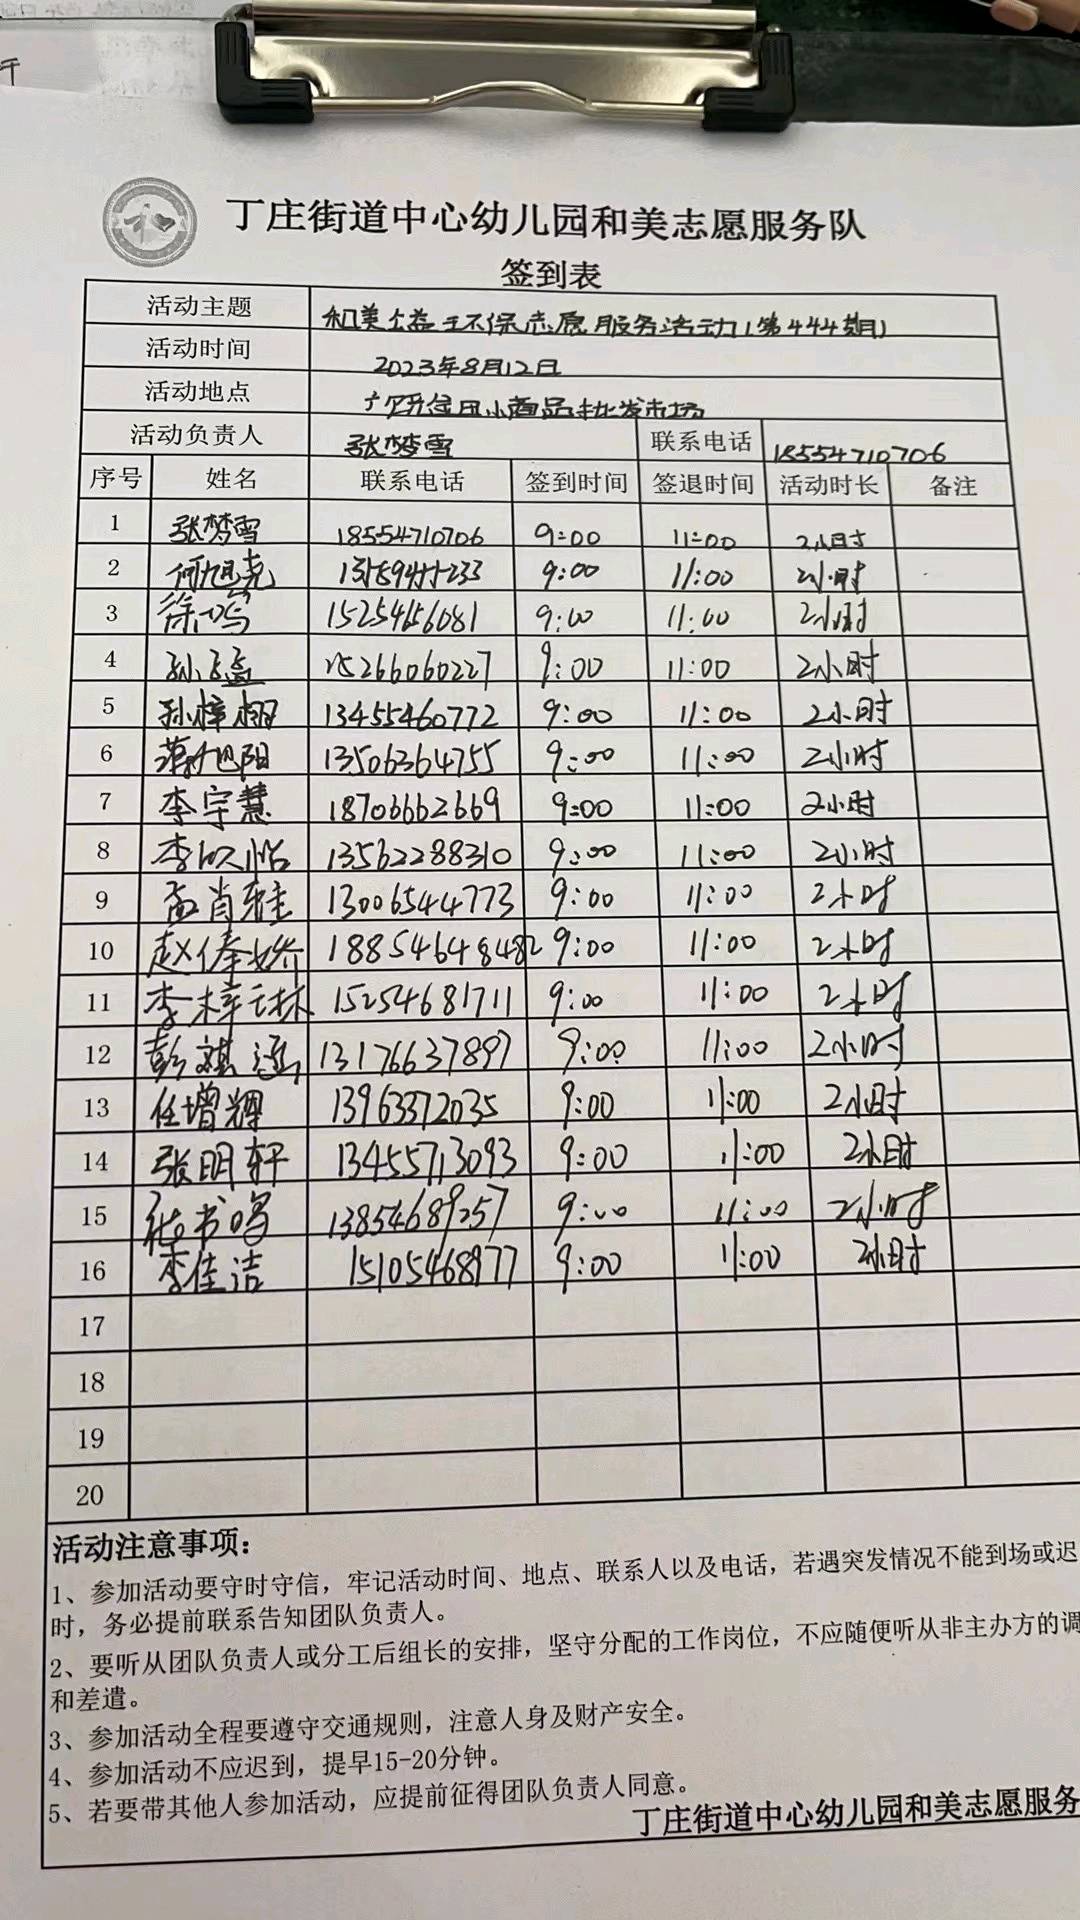 丁庄街道中心幼儿园和美志愿服务队
签到表
活动主题 和美公益环保志愿服务活动(第444期)
活动时间 2023年8月12日
活动地点 小商品批发市场
活动负责人 张梦雪 联系电话 18554710706
序号 姓名 联系电话 签到时间 签退时间 活动时长 备注
1 张梦雪 18554710706 9:00 11:00 2小时
2 何旭尧 9:00 11:00 2小时
3 徐鸣 15254656081 9:00 11:00 2小时
4 孙孟 15266060227 9:00 11:00 2小时
5 孙梓栩 13455460772 9:00 11:00 2小时
6 蒋旭阳 13506364755 9:00 11:00 2小时
7 李宇慧 18706662669 9:00 11:00 2小时
8 李 怡 13562288310 9:00 11:00 2小时
9 孟肖 13006544773 9:00 11:00 2小时
10 赵俸娇 18854648482 9:00 11:00 2小时
11 李梓林 15254681711 9:00 11:00 2小时
12 彭祺 13176637897 9:00 11:00 2小时
13 任增辉 13963372035 9:00 11:00 2小时
14 张明轩 13455713093 9:00 11:00 2小时
15 张书鸣 13854689257 9:00 11:00 2小时
16 李佳洁 15105468977 9:00 11:00 2小时
17
18
19
20
活动注意事项：
1、参加活动要守时守信，牢记活动时间、地点、联系人以及电话，若遇突发情况不能到场或迟
时，务必提前联系告知团队负责人。
2、要听从团队负责人或分工后组长的安排，坚守分配的工作岗位，不应随便听从非主办方的调
和差遣。
3、参加活动全程要遵守交通规则，注意人身及财产安全。
4、参加活动不应迟到，提早15-20分钟。
5、若要带其他人参加活动，应提前征得团队负责人同意。
丁庄街道中心幼儿园和美志愿服务